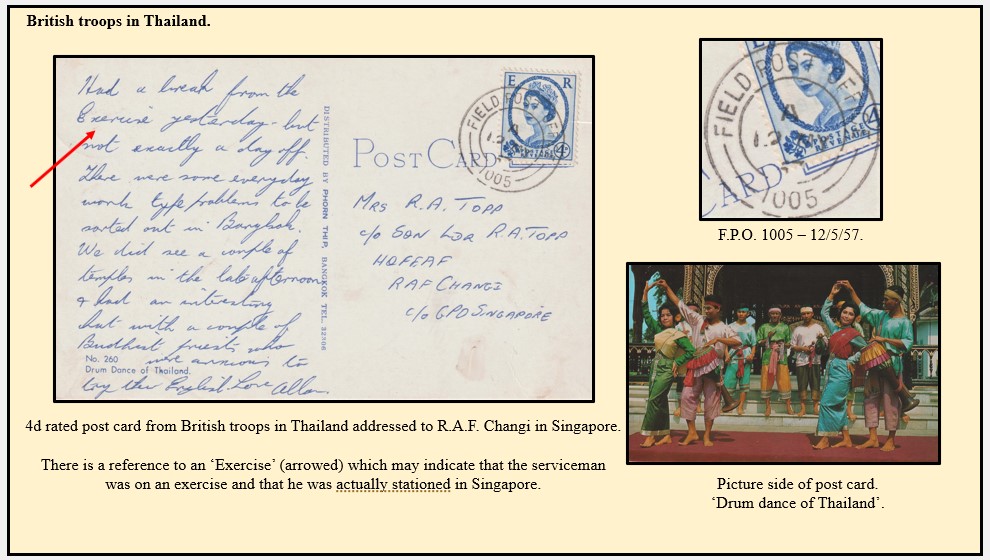 British troops in Thailand.
Had a break from the
Exercise yesterday - but
not exactly a day off.
There were some everyday
work type problems to be
sorted out in Bangkok.
We did see a couple of
temples in the late afternoon
& had an interesting
chat with a couple of
Buddhist priests who
were anxious to
try their English Love Allan
No. 260
Drum Dance of Thailand.
DISTRIBUTED BY PHORN THIP, BANGKOK TEL.
POST CARD
E R
POSTAGE
REVENUE
4
FIELD POST
1005
MRS R.A. TOPP
c/o SQN LDR R.A. TOPP
HQFEAF
RAF CHANGI
c/o GPO SINGAPORE
FIELD POST
1005
CARD
F.P.O. 1005 – 12/5/57.
4d rated post card from British troops in Thailand addressed to R.A.F. Changi in Singapore.
There is a reference to an ‘Exercise’ (arrowed) which may indicate that the serviceman
was on an exercise and that he was actually stationed in Singapore.
Picture side of post card.
‘Drum dance of Thailand’.